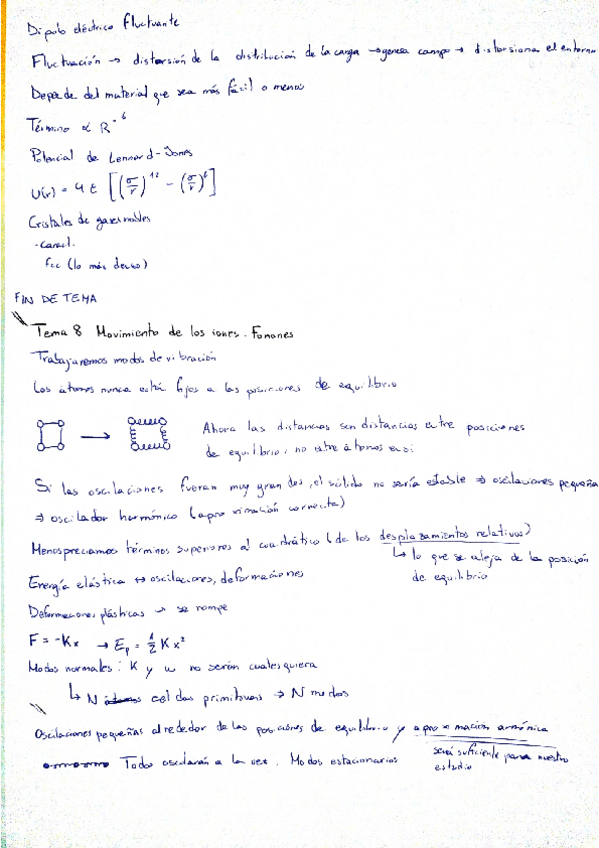 Dipolo eléctrico fluctuante
Fluctuación → distorsión de la distribución de la carga → genera campo → distorsiona el entorno
Depende del material que sea más fácil o menos
Término ∝ R^-6
Potencial de Lennard-Jones
U(r) = 4 ε [(σ/r)^12 - (σ/r)^6]
Cristales de gases nobles
· caract.
fcc (lo más denso)
FIN DE TEMA
Tema 8 Movimiento de los iones. Fonones
Trabajaremos modos de vibración
Los átomos nunca está fijos a las posiciones de equilibrio
Ahora las distancias son distancias entre posiciones
de equilibrio, no entre átomos en sí
Si las oscilaciones fueran muy grandes, el sólido no sería estable ⇒ oscilaciones pequeñas
⇒ oscilador harmónico (aproximación correcta)
Menospreciamos términos superiores al cuadrático (de los desplazamientos relativos)
↳ lo que se aleja de la posición
de equilibrio
Energía elástica ↔ oscilaciones, deformaciones
Deformaciones plásticas → se rompe
F = -Kx → Ep = 1/2 K x²
Modos normales: K y ω no serán cualesquiera
↳ N celdas primitivas ⇒ N modos
Oscilaciones pequeñas alrededor de las posiciones de equilibrio y aproximación armónica
será suficiente para nuestro
estudio
Todos oscilarán a la vez. Modos estacionarios